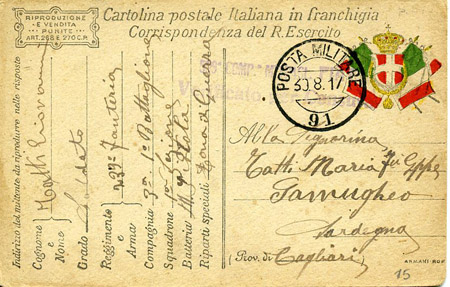 RIPRODUZIONE
E VENDITA
PUNITE
ART. 268 E 270 C.P.
Cartolina postale Italiana in franchigia
Corrispondenza del R. Esercito
POSTA MILITARE
30.8.17
91
Verificato
Indirizzo del mittente da riprodurre nelle risposte
Cognome e Nome Giovanni
Grado Soldato
Reggimento e Arma Fanteria
Compagnia 3a 1o Battaglione
Squadrone
Batteria
Riparti speciali Zona di Guerra
Alla Signorina
Tatti Maria fu Gppe
Samugheo
Sardegna
(Prov. di Cagliari)
15